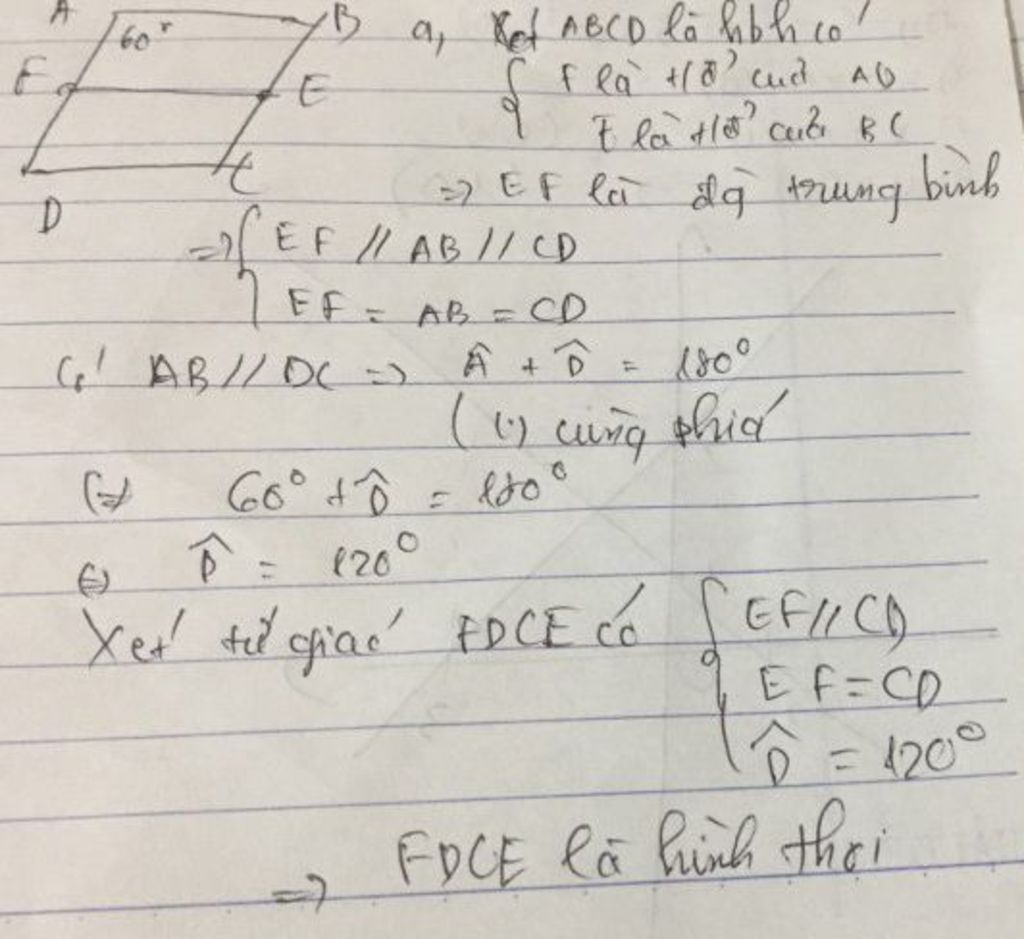 A
B
60°
F
E
D
C
a, Xét ABCD là hbh có
F là tđ' của AD
E là tđ' của BC
=> EF là đg trung bình
=> EF // AB // CD
EF = AB = CD
Có AB // DC => Â + D̂ = 180°
( (.) cùng phía
(=) 60° + D̂ = 180°
(=) D̂ = 120°
Xét tứ giác FDCE có
EF // CD
EF = CD
D̂ = 120°
=> FDCE là hình thoi